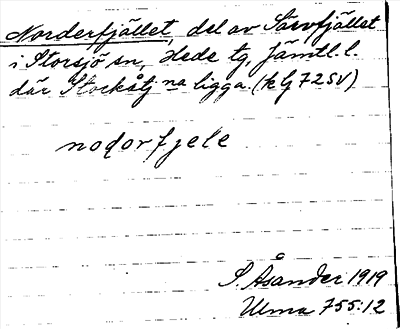 Norderfjället, del av Särvfjället
i Storsjö sn, Hede tg, Jämtl. l.
där Stockåtj na ligga. (72 SV)
nodorfjele
S. Åsander 1919
Ulma 755:12